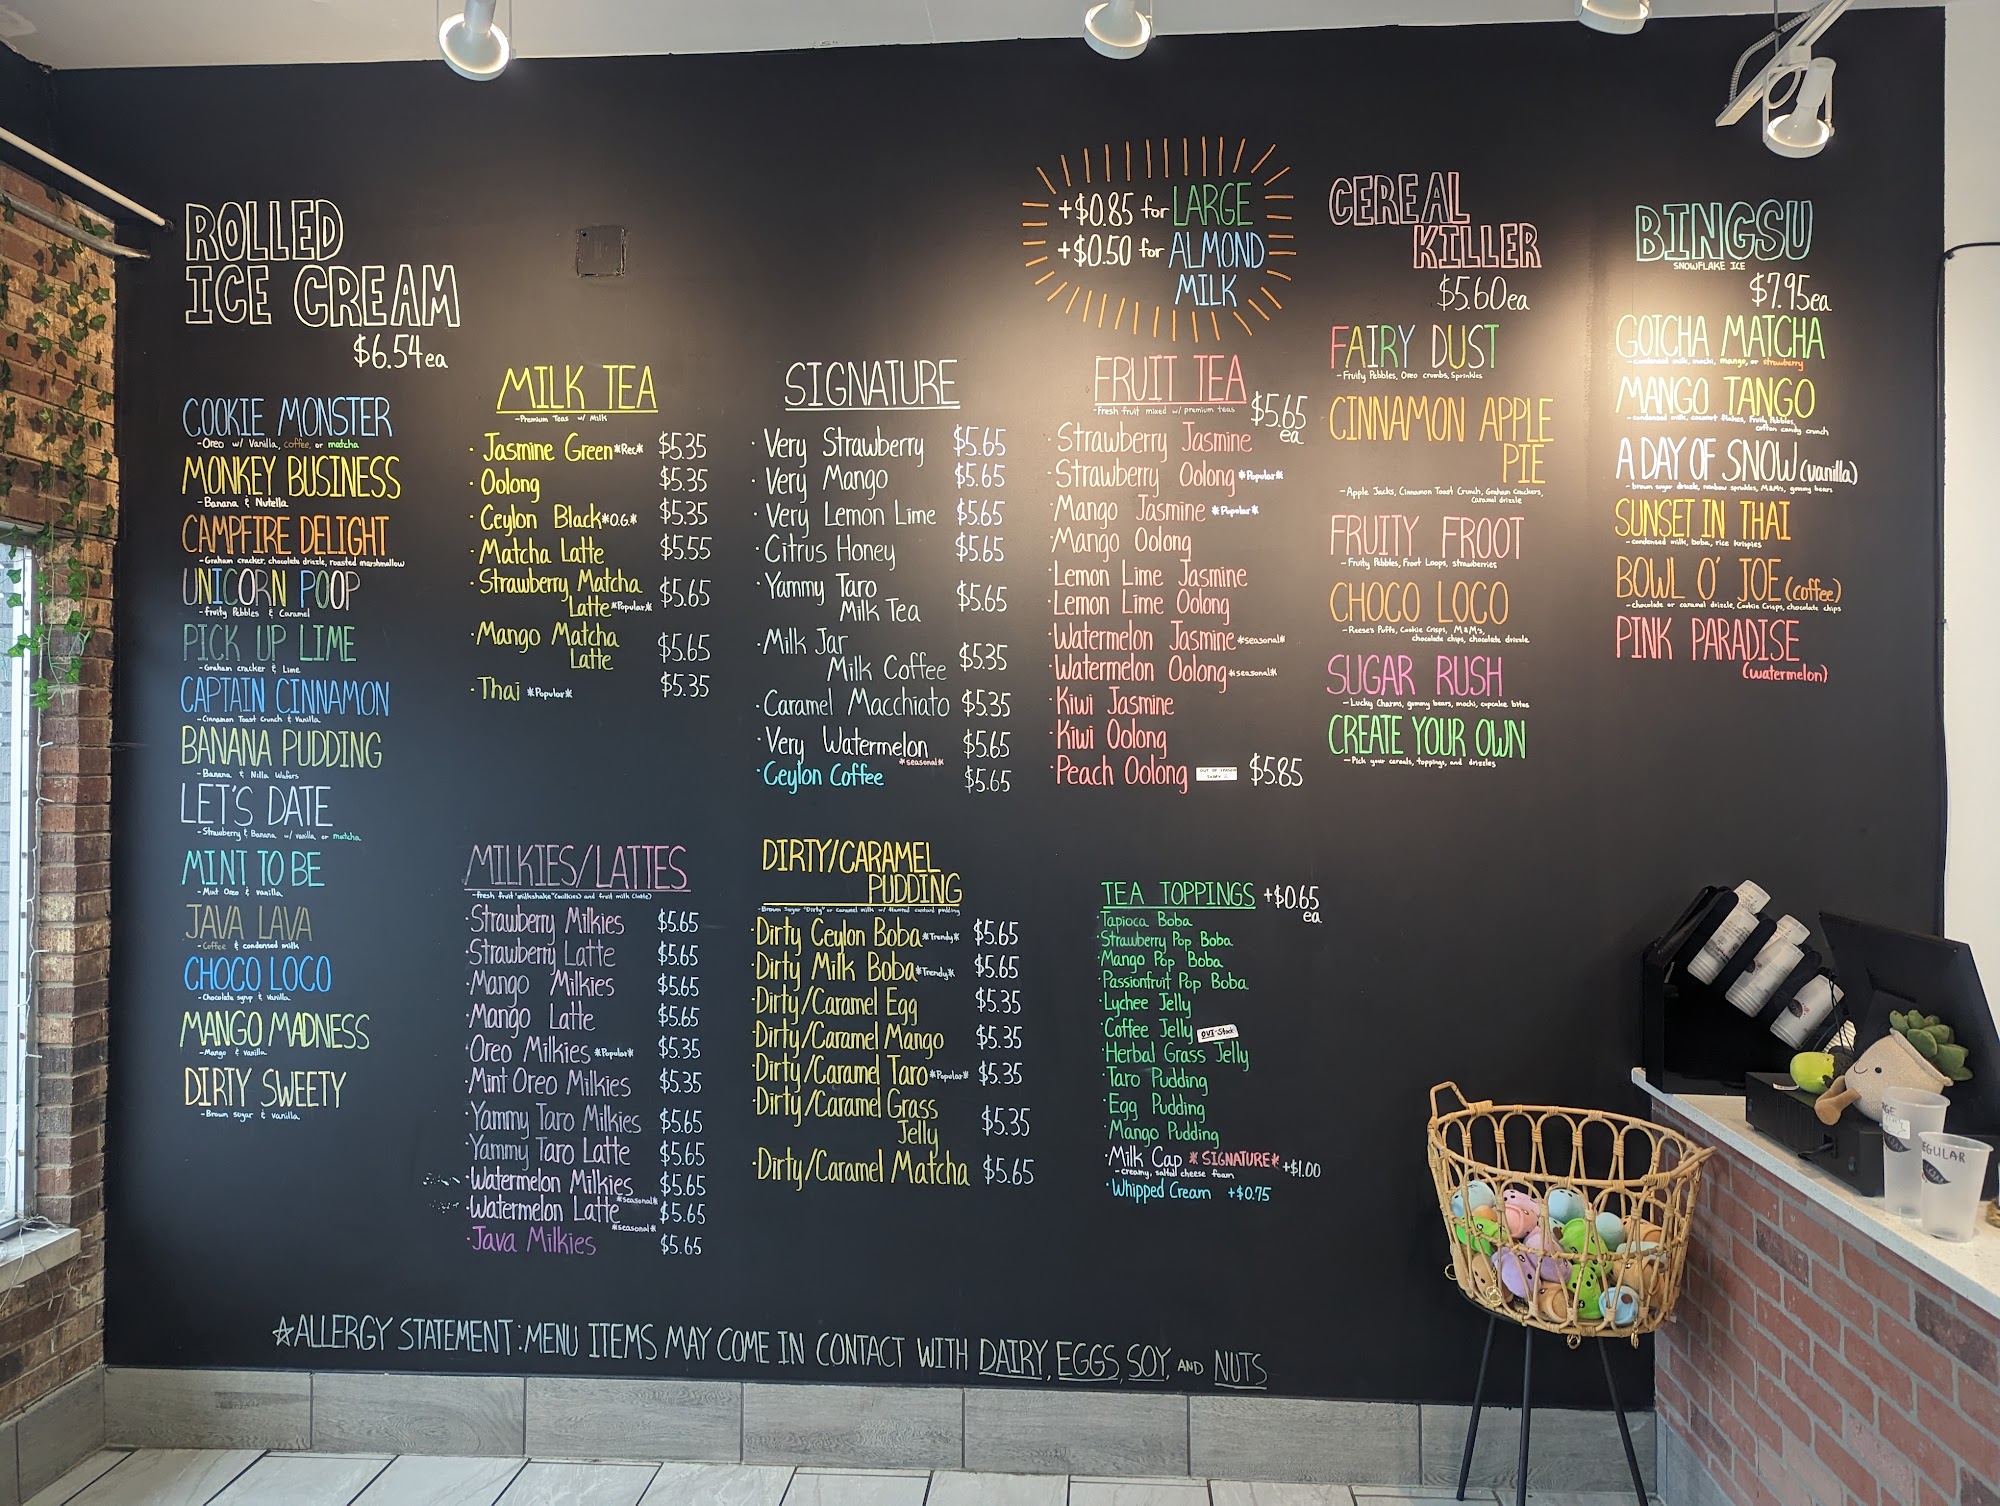 ROLLED
ICE CREAM
$6.54ea
COOKIE MONSTER
-Oreo w/ Vanilla, coffee, or matcha
MONKEY BUSINESS
-Banana & Nutella
CAMPFIRE DELIGHT
-Graham cracker, chocolate drizzle, roasted marshmallow
UNICORN POOP
-fruity Pebbles & Caramel
PICK UP LIME
-Graham cracker & Lime
CAPTAIN CINNAMON
-Cinnamon Toast Crunch & Vanilla
BANANA PUDDING
-Banana & Nilla Wafers
LET'S DATE
-Strawberry & Banana w/ vanilla or matcha
MINT TO BE
-Mint Oreo & vanilla
JAVA LAVA
-Coffee & condensed milk
CHOCO LOCO
-Chocolate syrup & Vanilla
MANGO MADNESS
-Mango & vanilla
DIRTY SWEETY
-Brown sugar & vanilla
MILK TEA
-Premium Teas w/ Milk
·Jasmine Green *Rec* $5.35
·Oolong $5.35
·Ceylon Black *O.G.* $5.35
·Matcha Latte $5.55
·Strawberry Matcha
Latte *Popular* $5.65
·Mango Matcha
Latte $5.65
·Thai *Popular* $5.35
SIGNATURE
·Very Strawberry $5.65
·Very Mango $5.65
·Very Lemon Lime $5.65
·Citrus Honey $5.65
·Yammy Taro
Milk Tea $5.65
·Milk Jar
Milk Coffee $5.35
·Caramel Macchiato $5.35
·Very Watermelon $5.65
*seasonal*
·Ceylon Coffee $5.65
+$0.85 for LARGE
+$0.50 for ALMOND
MILK
FRUIT TEA
-Fresh fruit mixed w/ premium teas
$5.65
ea
·Strawberry Jasmine
·Strawberry Oolong *Popular*
·Mango Jasmine *Popular*
·Mango Oolong
·Lemon Lime Jasmine
·Lemon Lime Oolong
·Watermelon Jasmine *seasonal*
·Watermelon Oolong *seasonal*
·Kiwi Jasmine
·Kiwi Oolong
·Peach Oolong OUT OF SEASON $5.85
SORRY
CEREAL
KILLER
$5.60ea
FAIRY DUST
-Fruity Pebbles, Oreo crumbs, Sprinkles
CINNAMON APPLE
PIE
-Apple Jacks, Cinnamon Toast Crunch, Graham Crackers,
Caramel drizzle
FRUITY FROOT
-Fruity Pebbles, Froot Loops, strawberries
CHOCO LOCO
-Reese's Puffs, Cookie Crisps, M&M's,
chocolate chips, chocolate drizzle
SUGAR RUSH
-Lucky Charms, gummy bears, mochi, cupcake bites
CREATE YOUR OWN
-Pick your cereals, toppings, and drizzles
BINGSU
SNOWFLAKE ICE
$7.95ea
GOTCHA MATCHA
-condensed milk, mochi, mango, or strawberry
MANGO TANGO
-condensed milk, coconut flakes, Fruity Pebbles,
cotton candy crunch
A DAY OF SNOW (vanilla)
-brown sugar drizzle, rainbow sprinkles, M&M's, gummy bears
SUNSET IN THAI
-condensed milk, boba, rice krispies
BOWL O' JOE (coffee)
-chocolate or caramel drizzle, Cookie Crisps, chocolate chips
PINK PARADISE
(watermelon)
MILKIES/LATTES
-fresh fruit "milkshake" (milkies) and fruit milk (latte)
·Strawberry Milkies $5.65
·Strawberry Latte $5.65
·Mango Milkies $5.65
·Mango Latte $5.65
·Oreo Milkies *Popular* $5.35
·Mint Oreo Milkies $5.35
·Yammy Taro Milkies $5.65
·Yammy Taro Latte $5.65
·Watermelon Milkies $5.65
*seasonal*
·Watermelon Latte $5.65
*seasonal*
·Java Milkies $5.65
DIRTY/CARAMEL
PUDDING
-Brown Sugar "Dirty" or caramel milk w/ flavored custard pudding
·Dirty Ceylon Boba *Trendy* $5.65
·Dirty Milk Boba *Trendy* $5.65
·Dirty/Caramel Egg $5.35
·Dirty/Caramel Mango $5.35
·Dirty/Caramel Taro *Popular* $5.35
·Dirty/Caramel Grass
Jelly $5.35
·Dirty/Caramel Matcha $5.65
TEA TOPPINGS +$0.65
ea
·Tapioca Boba
·Strawberry Pop Boba
·Mango Pop Boba
·Passionfruit Pop Boba
·Lychee Jelly
·Coffee Jelly
·Herbal Grass Jelly
·Taro Pudding
·Egg Pudding
·Mango Pudding
·Milk Cap *SIGNATURE* +$1.00
-creamy, salted cheese foam
·Whipped Cream +$0.75
*ALLERGY STATEMENT: MENU ITEMS MAY COME IN CONTACT WITH DAIRY, EGGS, SOY, AND NUTS